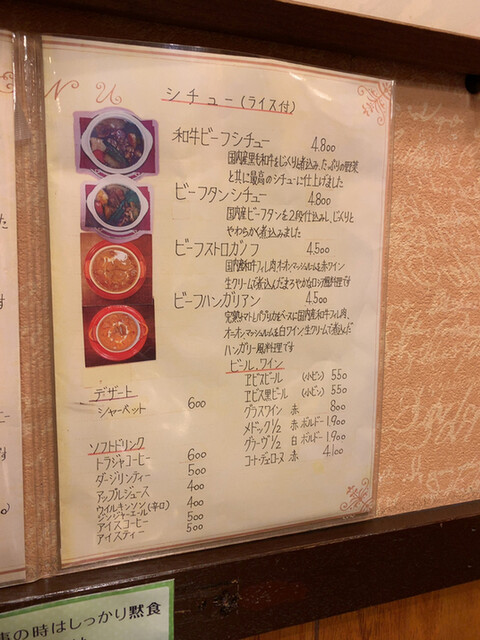 NU
シチュー(ライス付)
和牛ビーフシチュー 4.800
国内産黒毛和牛をじっくりと煮込み、たっぷりの野菜
と共に最高のシチューに仕上げました
ビーフタンシチュー 4.800
国内産ビーフタンを2段仕込みし、じっくりと
やわらかく煮込みました
ビーフストロガノフ 4.500
国内産和牛フィレ肉、オニオン、マッシュルームを赤ワイン
生クリームで煮込んだまろやかなロシア風料理です
ビーフハンガリアン 4.500
完熟トマトとパプリカをベースに国内産和牛フィレ肉、
オニオン、マッシュルームを白ワイン、生クリームで煮込んだ
ハンガリー風料理です
ビール、ワイン
ヱビスビール (小ビン) 550
ヱビス黒ビール (小ビン) 550
グラスワイン 赤 800
メドック1/2 赤 ボルドー 1,900
グラーヴ1/2 白 ボルドー 1,900
コート・デュ・ローヌ 赤 4,100
デザート
シャーベット 600
ソフトドリンク
トラジャコーヒー 600
ダージリンティー 500
アップルジュース 400
ウイルキンソン(辛口)
ジンジャーエール 400
アイスコーヒー 500
アイスティー 500
事の時はしっかり黙食